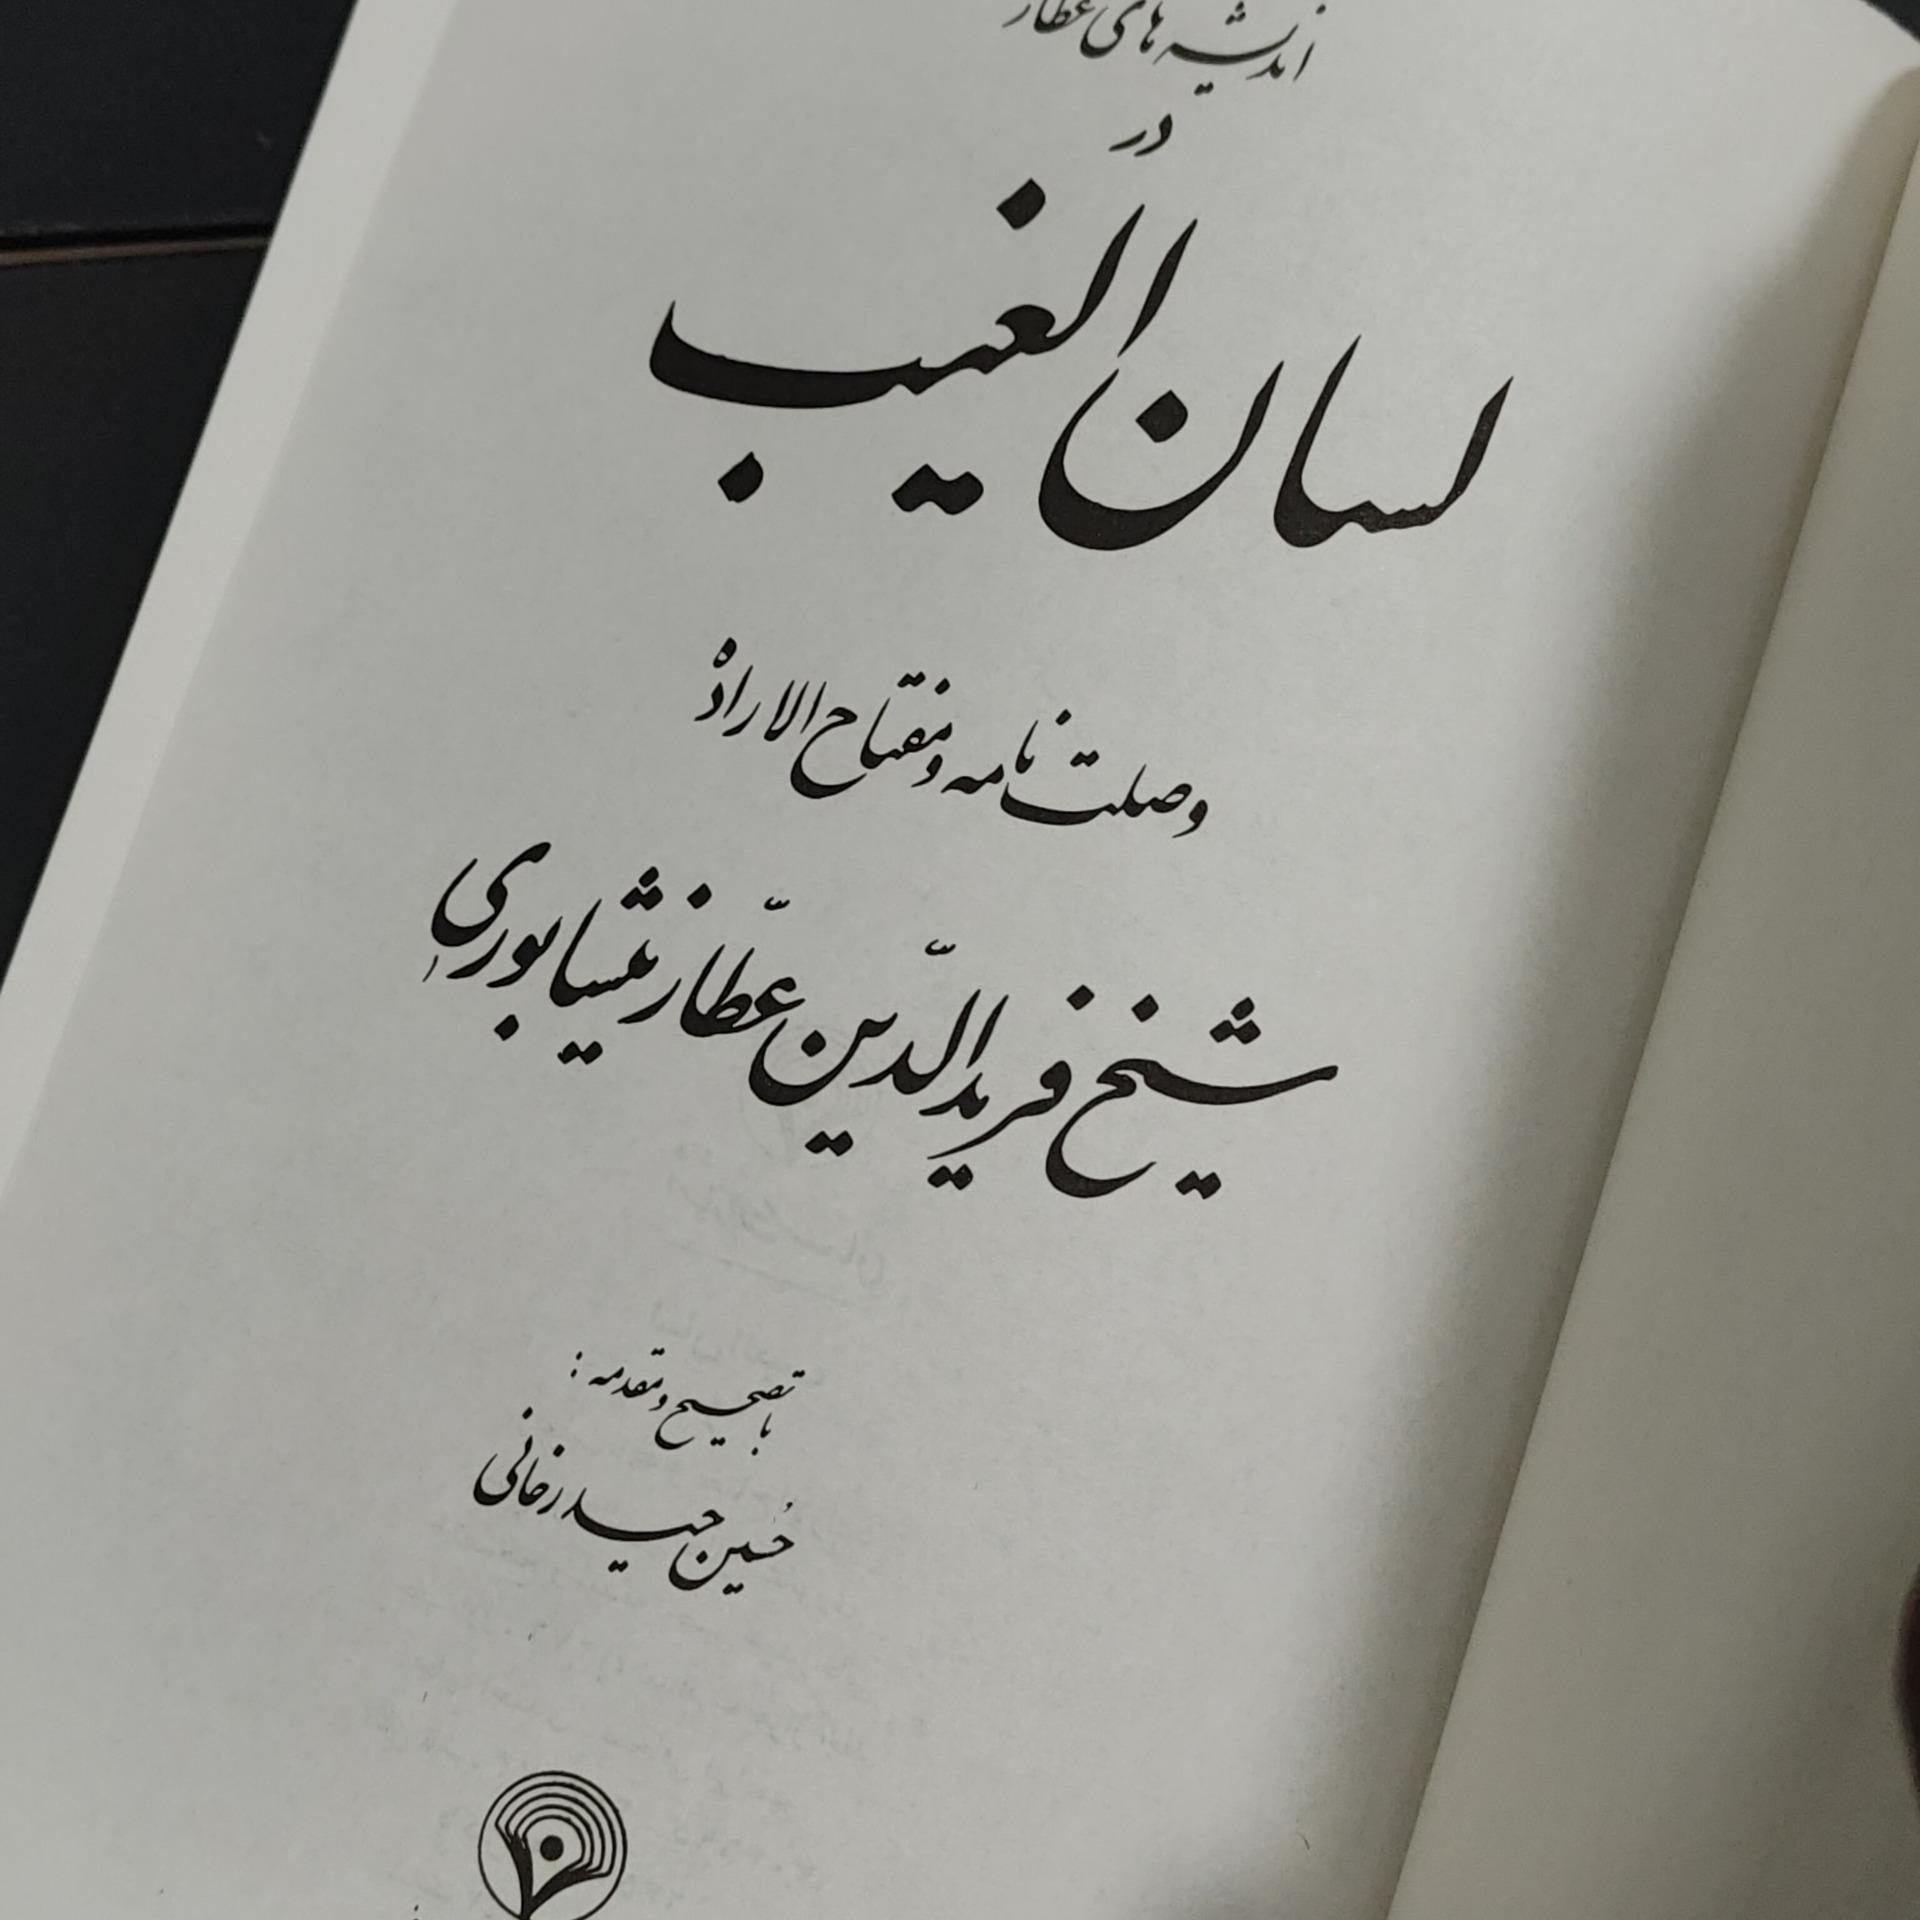 اندیشه های عطار
در
لسان الغیب
وصلت نامه و مفتاح الاراده
شیخ فریدالدّین عطّار نیشابوری
با تصحیح و مقدمه :
حُسین حیدرخانی